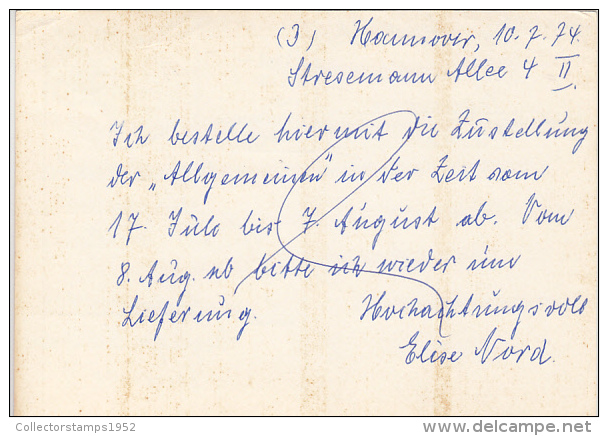 (3) Hannover, 10.7.74.
Stresemann Allee 4 II.
Ich bestelle hiermit die Zustellung
der „Allgemeinen" in der Zeit vom
17. Juli bis 7. August ab. Vom
8. Aug. ab bitte ich wieder um
Lieferung.
Hochachtungsvoll
Elise Nord.
Collectorstamps1952
www.delcampe.net